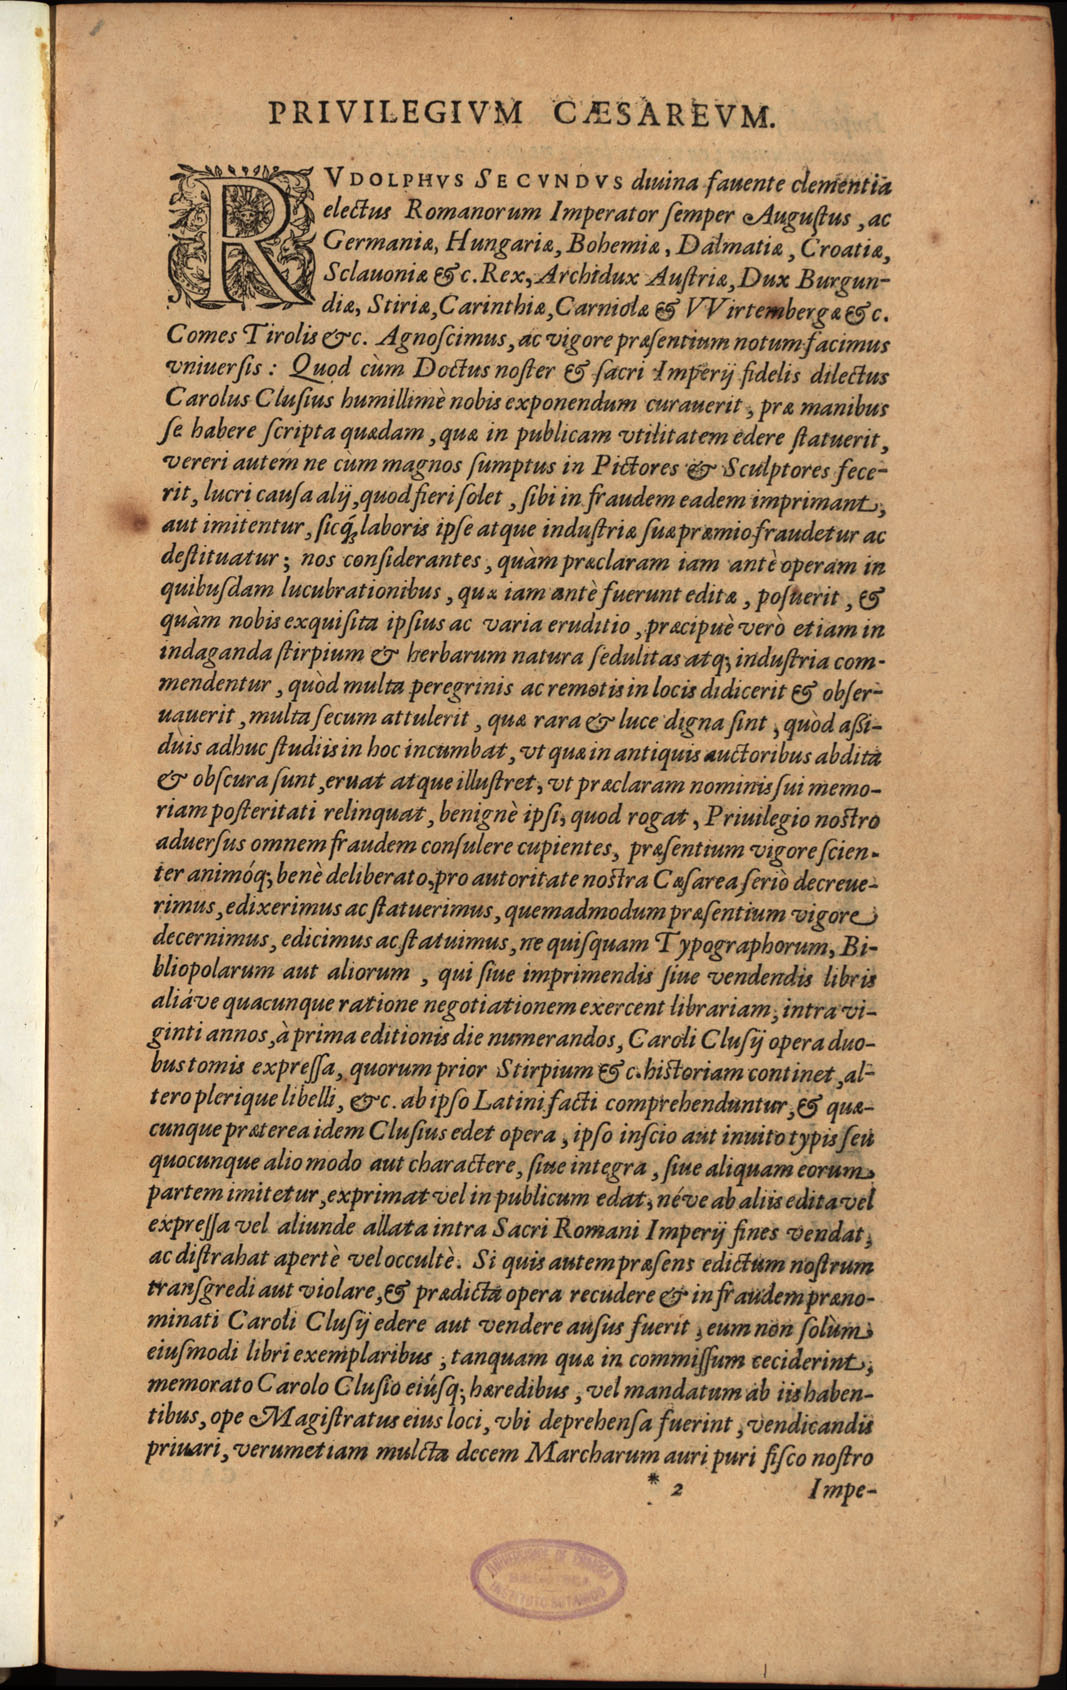 PRIVILEGIVM CÆSAREVM.
RVDOLPHVS SECVNDVS diuina fauente clementia
electus Romanorum Imperator ſemper Auguſtus, ac
Germaniæ, Hungariæ, Bohemiæ, Dalmatiæ, Croatiæ,
Sclauoniæ &c. Rex, Archidux Auſtriæ, Dux Burgun-
diæ, Stiriæ, Carinthiæ, Carniolæ & VVirtembergæ &c.
Comes Tirolis &c. Agnoſcimus, ac vigore præſentium notum facimus
vniuerſis: Quod cùm Doctus noſter & ſacri Imperij fidelis dilectus
Carolus Cluſius humillimè nobis exponendum curauerit, præ manibus
ſe habere ſcripta quædam, quæ in publicam vtilitatem edere ſtatuerit,
vereri autem ne cùm magnos ſumptus in Pictores & Sculptores fece-
rit, lucri cauſa alij, quod fieri ſolet, ſibi in fraudem eadem imprimant,
aut imitentur, ſicq́; laboris ipſe atque induſtriæ ſuæ præmio fraudetur ac
deſtituatur; nos conſiderantes, quàm præclaram iam antè operam in
quibuſdam lucubrationibus, quæ iam antè fuerunt editæ, poſuerit, &
quàm nobis exquiſita ipſius ac varia eruditio, præcipuè verò etiam in
indaganda ſtirpium & herbarum natura ſedulitas atq; induſtria com-
mendentur, quòd multa peregrinis ac remotis in locis didicerit & obſer-
uauerit, multa ſecum attulerit, quæ rara & luce digna ſint, quòd aſsi-
duis adhuc ſtudiis in hoc incumbat, vt quæ in antiquis auctoribus abdita
& obſcura ſunt, eruat atque illuſtret, vt præclaram nominis ſui memo-
riam poſteritati relinquat, benignè ipſi, quod rogat, Priuilegio noſtro
aduerſus omnem fraudem conſulere cupientes, præſentium vigore ſcien-
ter animóq; benè deliberato, pro autoritate noſtra Cæſarea ſeriò decreue-
rimus, edixerimus ac ſtatuerimus, quemadmodum præſentium vigore
decernimus, edicimus ac ſtatuimus, ne quiſquam Typographorum, Bi-
bliopolarum aut aliorum, qui ſiue imprimendis ſiue vendendis libris
aliáve quacunque ratione negotiationem exercent librariam, intra vi-
ginti annos, à prima editionis die numerandos, Caroli Cluſij opera duo-
bus tomis expreſſa, quorum prior Stirpium &c. hiſtoriam continet, al-
tero plerique libelli, &c. ab ipſo Latini facti comprehenduntur, & quæ-
cunque præterea idem Cluſius edet opera, ipſo inſcio aut inuito typis ſeu
quocunque alio modo aut charactere, ſiue integra, ſiue aliquam eorum
partem imitetur, exprimat vel in publicum edat, néve ab aliis edita vel
expreſſa vel aliunde allata intra Sacri Romani Imperij fines vendat,
ac diſtrahat apertè vel occultè. Si quis autem præſens edictum noſtrum
tranſgredi aut violare, & prædicta opera recudere & in fraudem præno-
minati Caroli Cluſij edere aut vendere auſus fuerit, eum non ſolùm
eiuſmodi libri exemplaribus, tanquam quæ in commiſſum ceciderint,
memorato Carolo Cluſio eiúſq; hæredibus, vel mandatum ab iis haben-
tibus, ope Magiſtratus eius loci, vbi deprehenſa fuerint, vendicandis
priuari, verumetiam mulcta decem Marcharum auri puri fiſco noſtro
* 2 Impe-